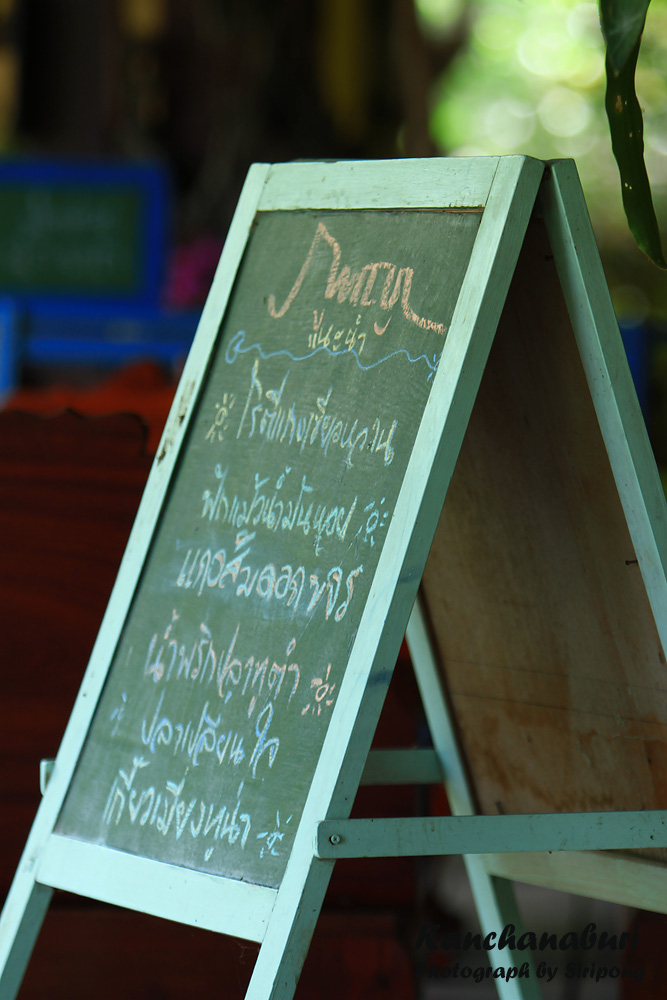 เมนู
แนะนำ
โรตีแกงเขียวหวาน
ฟักแม้วน้ำมันหอย
แกงส้มดอกขจร
น้ำพริกปลาทูตำ
ปลาเปลี่ยนใจ
เกี้ยวเมียงทูน่า
Kanchanaburi
Photograph by Siripong